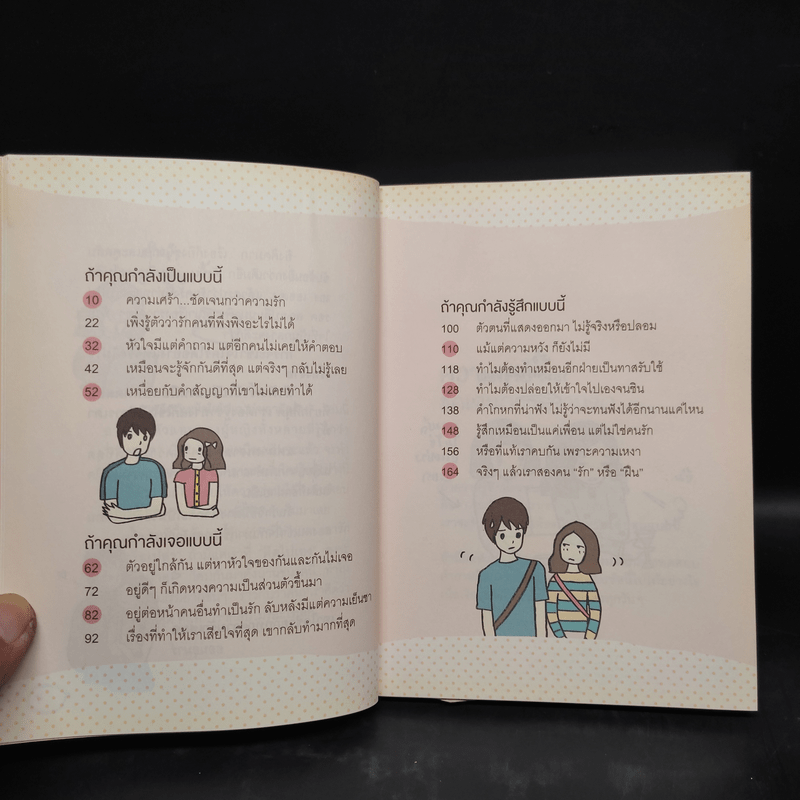 ถ้าคุณกำลังเป็นแบบนี้
10 ความเศร้า...ชัดเจนกว่าความรัก
22 เพิ่งรู้ตัวว่ารักคนที่พึ่งพิงอะไรไม่ได้
32 หัวใจมีแต่คำถาม แต่อีกคนไม่เคยให้คำตอบ
42 เหมือนจะรู้จักกันดีที่สุด แต่จริงๆ กลับไม่รู้เลย
52 เหนื่อยกับคำสัญญาที่เขาไม่เคยทำได้
ถ้าคุณกำลังเจอแบบนี้
62 ตัวอยู่ใกล้กัน แต่หาหัวใจของกันและกันไม่เจอ
72 อยู่ดีๆ ก็เกิดหวงความเป็นส่วนตัวขึ้นมา
82 อยู่ต่อหน้าคนอื่นทำเป็นรัก ลับหลังมีแต่ความเย็นชา
92 เรื่องที่ทำให้เราเสียใจที่สุด เขากลับทำมากที่สุด
ถ้าคุณกำลังรู้สึกแบบนี้
100 ตัวตนที่แสดงออกมา ไม่รู้จริงหรือปลอม
110 แม้แต่ความหวัง ก็ยังไม่มี
118 ทำไมต้องทำเหมือนอีกฝ่ายเป็นทาสรับใช้
128 ทำไมต้องปล่อยให้เข้าใจไปเองจนชิน
138 คำโกหกที่น่าฟัง ไม่รู้ว่าจะทนฟังได้อีกนานแค่ไหน
148 รู้สึกเหมือนเป็นแค่เพื่อน แต่ไม่ใช่คนรัก
156 หรือที่แท้เราคบกัน เพราะความเหงา
164 จริงๆ แล้วเราสองคน "รัก" หรือ "ฝืน"